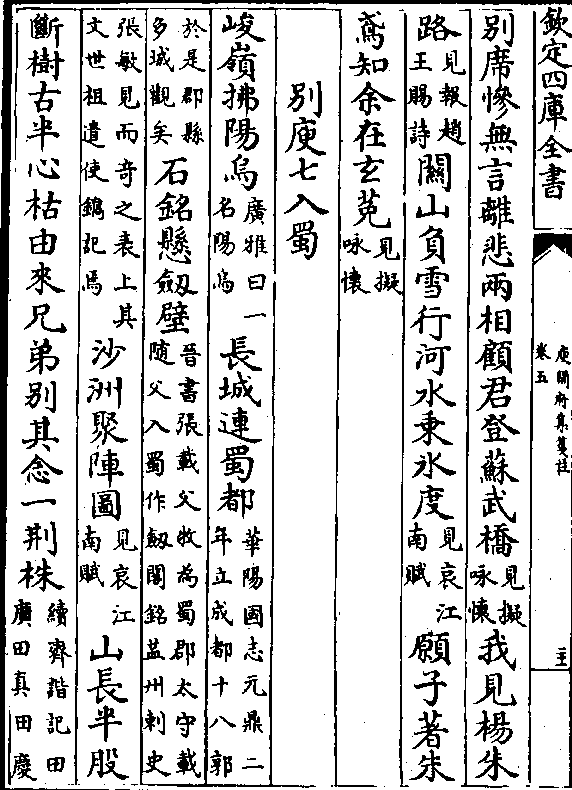 欽定四庫全書
庾開府集箋註
卷五
別席慘無言離悲兩相顧君登蘇武橋見擬咏懷我見楊朱
路見報趙王賜詩關山負雪行河水乗氷度見哀江南賦願子著朱
鳶知余在玄菟見擬咏懷
別庾七入蜀
峻嶺拂陽烏廣雅曰一名陽烏長城連蜀都華陽國志元鼎二年立成都十八郭
於是郡縣多城觀矣石銘懸劔壁晉書張載父牧為蜀郡太守載隨父入蜀作劔閣銘益州刺史
張敏見而奇之表上其文世祖遣使鐫記焉沙洲聚陣圖見哀江南賦山長半股
斷樹古半心枯由來兄弟別其念一荆株續齊諧記田廣田真田慶